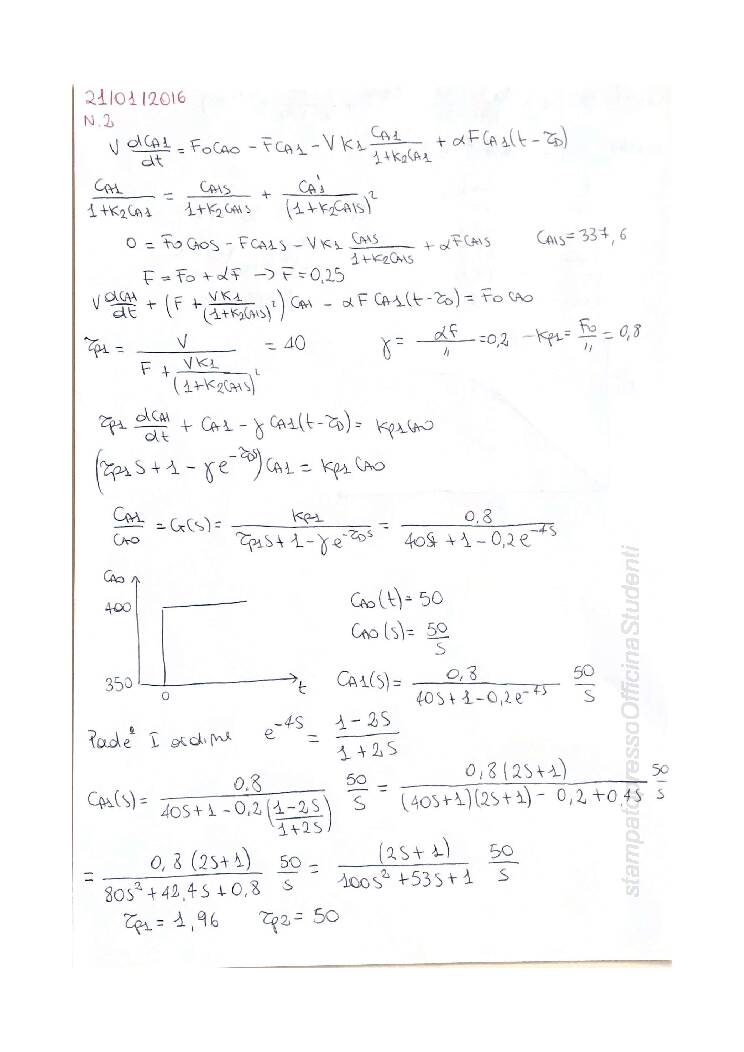 21/01/2016
N.2
V dCA1/dt = F0CA0 - FCA1 - VK1 CA1/(1+K2CA1) + αFCA1(t-τD)
CA1/(1+K2CA1) = CA1S/(1+K2CA1S) + CA1'/(1+K2CA1S)²
0 = F0CA0S - FCA1S - VK1 CA1S/(1+K2CA1S) + αFCA1S CA1S=337,6
F = F0 + αF -> F=0,25
V dCA1/dt + (F + VK1/(1+K2CA1S)²) CA1 - αFCA1(t-τD) = F0CA0
τp1 = V/(F + VK1/(1+K2CA1S)²) = 40 γ = αF/" = 0,2 - Kp1 = F0/" = 0,8
τp1 dCA1/dt + CA1 - γCA1(t-τD) = Kp1CA0
(τp1S + 1 - γe^-τDS) CA1 = Kp1CA0
CA1/CA0 = G(S) = Kp1/(τp1S+1-γe^-τDS) = 0,8/(40S+1-0,2e^-4S)
CA0
400
350
0
t
CA0(t) = 50
CA0(S) = 50/S
CA1(S) = 0,8/(40S+1-0,2e^-4S) 50/S
Padè I ordine e^-4S = (1-2S)/(1+2S)
CA1(S) = 0.8/(40S+1-0.2((1-2S)/(1+2S))) 50/S = 0,8(2S+1)/((40S+1)(2S+1)-0,2+0,4S) 50/S
= 0,8(2S+1)/(80S²+42,4S+0,8) 50/S = (2S+1)/(100S²+53S+1) 50/S
τp1 = 1,96 τp2 = 50
stampato presso Officina Studenti